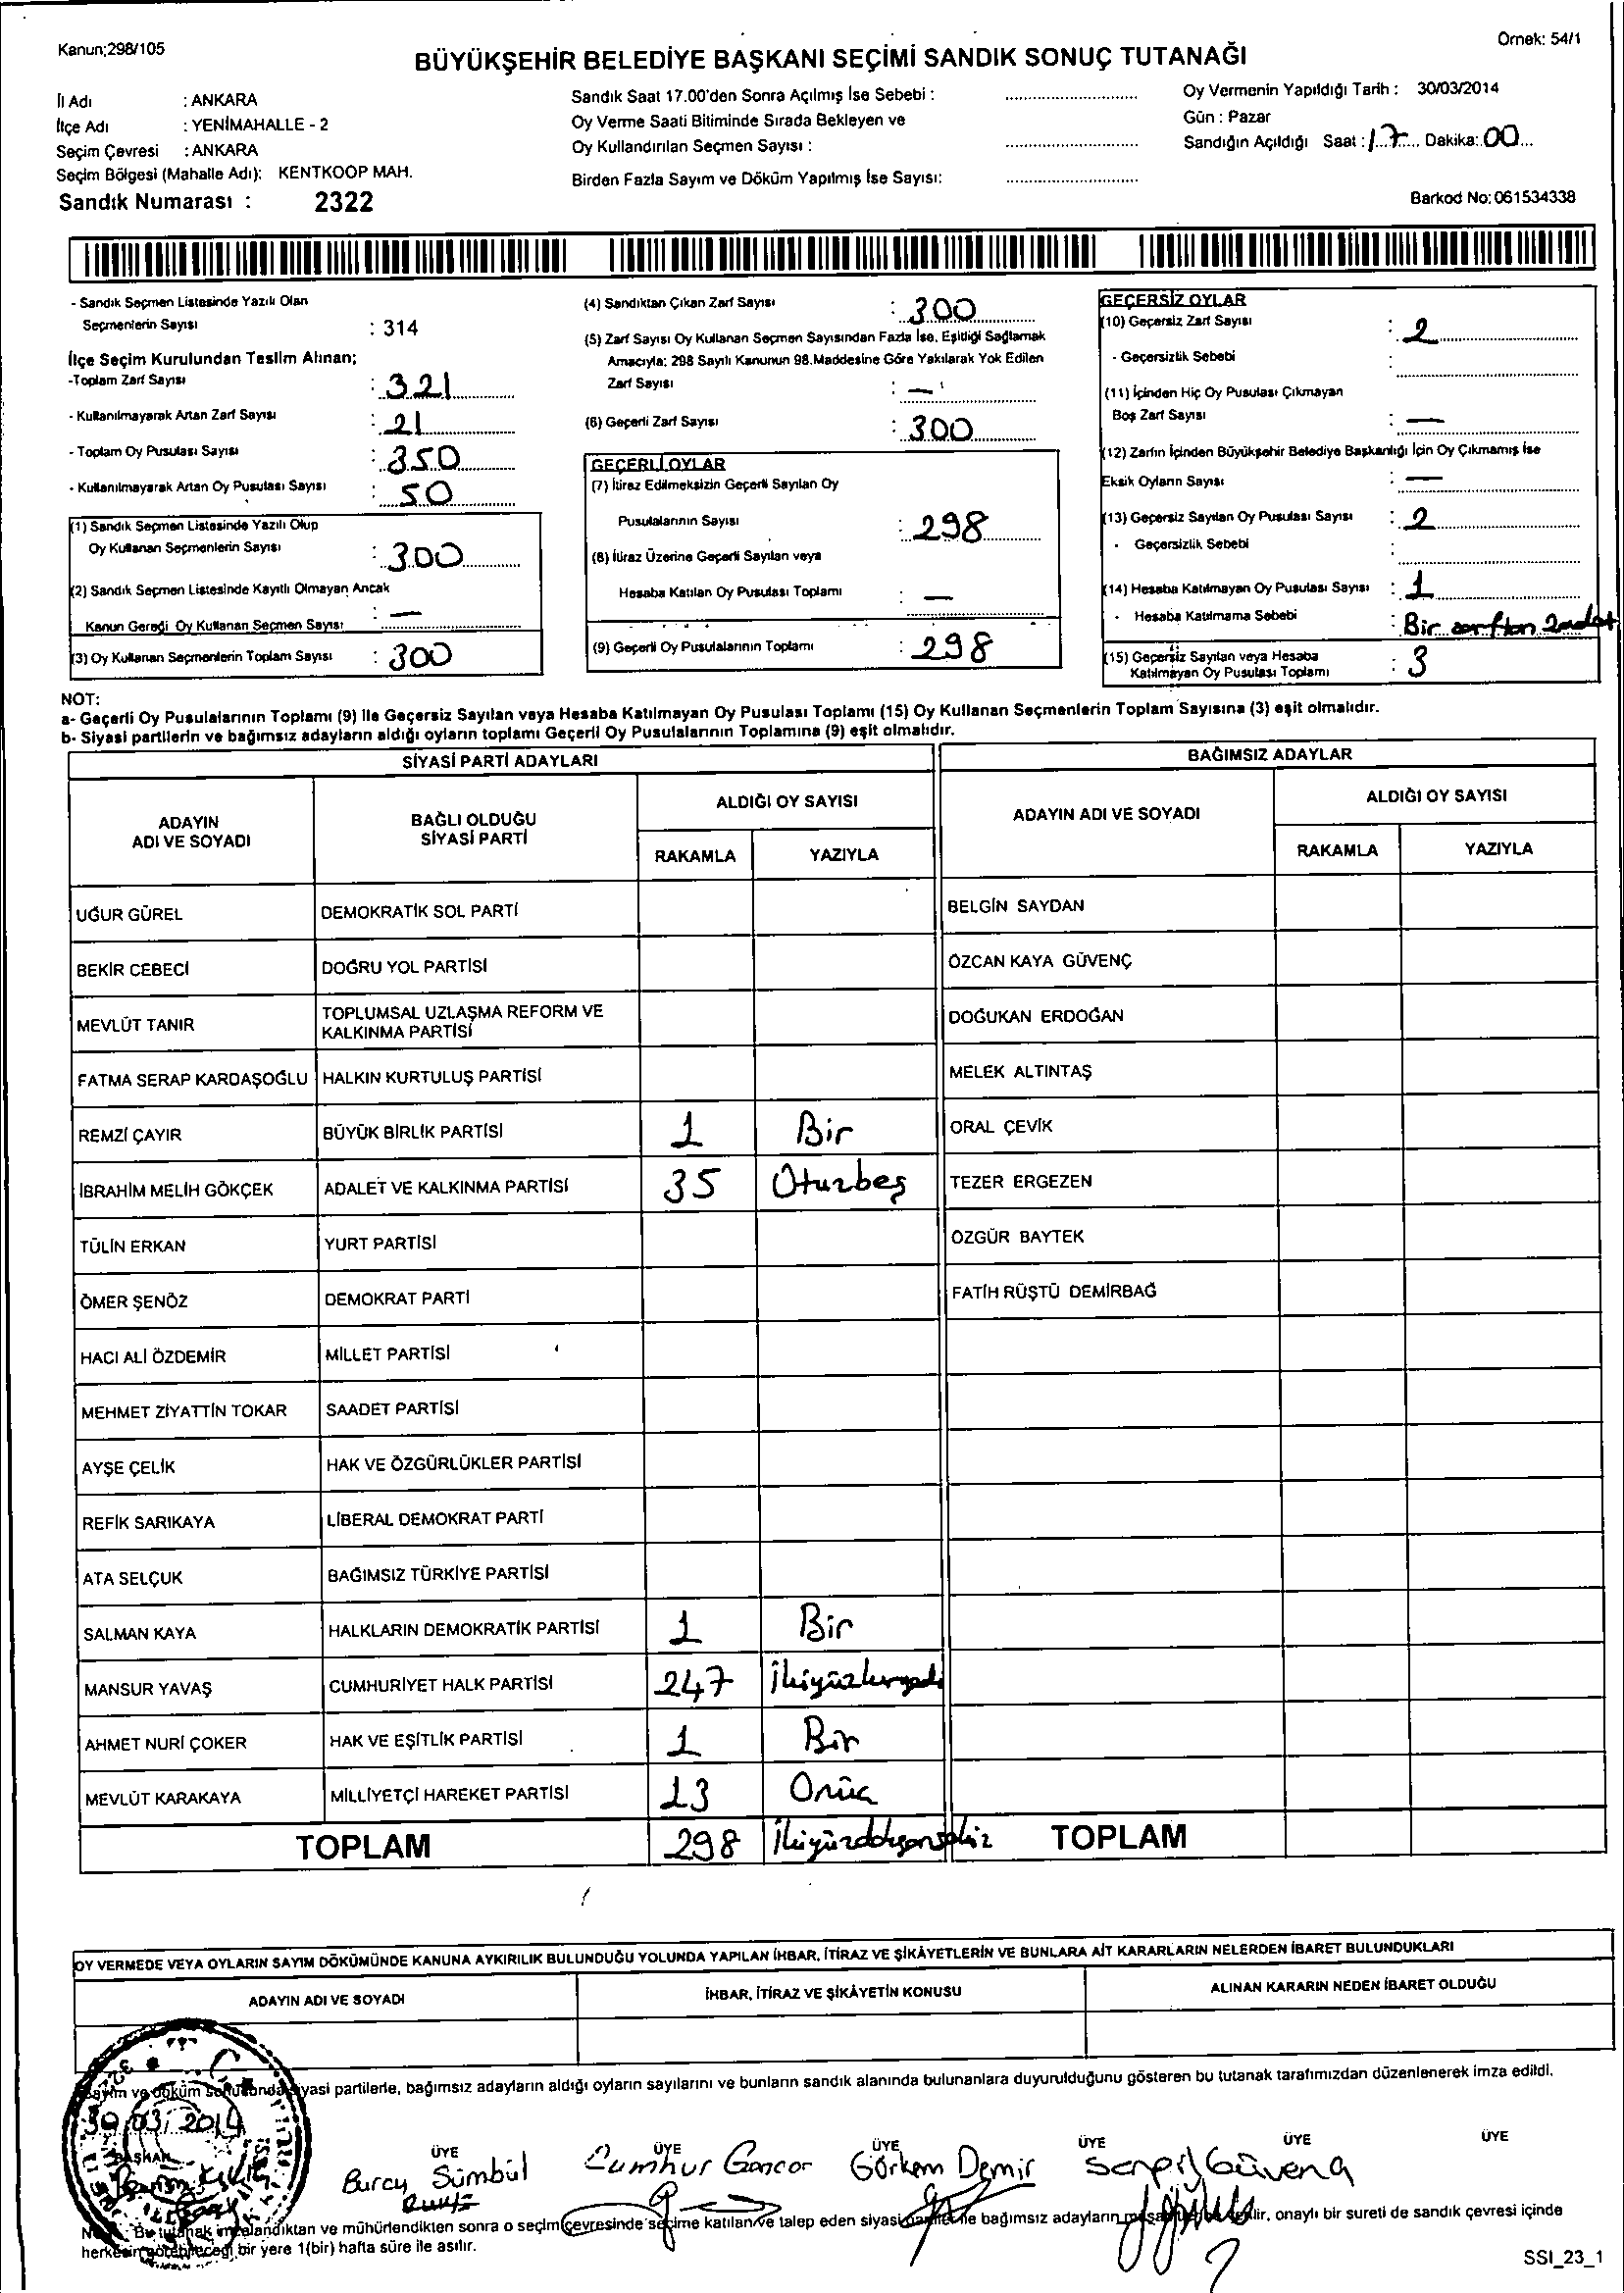 Kanun;298/105
Örnek: 54/1
BÜYÜKŞEHİR BELEDİYE BAŞKANI SEÇİMİ SANDIK SONUÇ TUTANAĞI
İl Adı : ANKARA
İlçe Adı : YENİMAHALLE - 2
Seçim Çevresi : ANKARA
Seçim Bölgesi (Mahalle Adı): KENTKOOP MAH.
Sandık Numarası : 2322
Sandık Saat 17.00'den Sonra Açılmış İse Sebebi :
Oy Verme Saati Bitiminde Sırada Bekleyen ve
Oy Kullandırılan Seçmen Sayısı :
Birden Fazla Sayım ve Döküm Yapılmış İse Sayısı:
Oy Vermenin Yapıldığı Tarih : 30/03/2014
Gün : Pazar
Sandığın Açıldığı Saat : 17 Dakika: 00
Barkod No: 061534338
- Sandık Seçmen Listesinde Yazılı Olan
Seçmenlerin Sayısı : 314
İlçe Seçim Kurulundan Teslim Alınan;
-Toplam Zarf Sayısı : 321
- Kullanılmayarak Artan Zarf Sayısı : 21
- Toplam Oy Pusulası Sayısı : 350
- Kullanılmayarak Artan Oy Pusulası Sayısı : 50
(1) Sandık Seçmen Listesinde Yazılı Olup
Oy Kullanan Seçmenlerin Sayısı : 300
(2) Sandık Seçmen Listesinde Kayıtlı Olmayan Ancak
Kanun Gereği Oy Kullanan Seçmen Sayısı : —
(3) Oy Kullanan Seçmenlerin Toplam Sayısı : 300
(4) Sandıktan Çıkan Zarf Sayısı : 300
(5) Zarf Sayısı Oy Kullanan Seçmen Sayısından Fazla İse, Eşitliği Sağlamak
Amacıyla; 298 Sayılı Kanunun 98.Maddesine Göre Yakılarak Yok Edilen
Zarf Sayısı : —
(6) Geçerli Zarf Sayısı : 300
GEÇERLİ OYLAR
(7) İtiraz Edilmeksizin Geçerli Sayılan Oy
Pusulalarının Sayısı : 298
(8) İtiraz Üzerine Geçerli Sayılan veya
Hesaba Katılan Oy Pusulası Toplamı : —
(9) Geçerli Oy Pusulalarının Toplamı : 298
GEÇERSİZ OYLAR
(10) Geçersiz Zarf Sayısı : 2
- Geçersizlik Sebebi :
(11) İçinden Hiç Oy Pusulası Çıkmayan
Boş Zarf Sayısı : —
(12) Zarfın İçinden Büyükşehir Belediye Başkanlığı İçin Oy Çıkmamış İse
Eksik Oyların Sayısı : —
(13) Geçersiz Sayılan Oy Pusulası Sayısı : 2
- Geçersizlik Sebebi :
(14) Hesaba Katılmayan Oy Pusulası Sayısı : 1
- Hesaba Katılmama Sebebi : Bir zarftan 2 adet
(15) Geçersiz Sayılan veya Hesaba
Katılmayan Oy Pusulası Toplamı : 3
NOT:
a- Geçerli Oy Pusulalarının Toplamı (9) ile Geçersiz Sayılan veya Hesaba Katılmayan Oy Pusulası Toplamı (15) Oy Kullanan Seçmenlerin Toplam Sayısına (3) eşit olmalıdır.
b- Siyasi partilerin ve bağımsız adayların aldığı oyların toplamı Geçerli Oy Pusulalarının Toplamına (9) eşit olmalıdır.
SİYASİ PARTİ ADAYLARI
BAĞIMSIZ ADAYLAR
ADAYIN
ADI VE SOYADI
BAĞLI OLDUĞU
SİYASİ PARTİ
ALDIĞI OY SAYISI
RAKAMLA YAZIYLA
ADAYIN ADI VE SOYADI
ALDIĞI OY SAYISI
RAKAMLA YAZIYLA
UĞUR GÜREL DEMOKRATİK SOL PARTİ BELGİN SAYDAN
BEKİR CEBECİ DOĞRU YOL PARTİSİ ÖZCAN KAYA GÜVENÇ
MEVLÜT TANIR TOPLUMSAL UZLAŞMA REFORM VE
KALKINMA PARTİSİ DOĞUKAN ERDOĞAN
FATMA SERAP KARDAŞOĞLU HALKIN KURTULUŞ PARTİSİ MELEK ALTINTAŞ
REMZİ ÇAYIR BÜYÜK BİRLİK PARTİSİ 1 Bir ORAL ÇEVİK
İBRAHİM MELİH GÖKÇEK ADALET VE KALKINMA PARTİSİ 35 Oturbeş TEZER ERGEZEN
TÜLİN ERKAN YURT PARTİSİ ÖZGÜR BAYTEK
ÖMER ŞENÖZ DEMOKRAT PARTİ FATİH RÜŞTÜ DEMİRBAĞ
HACI ALİ ÖZDEMİR MİLLET PARTİSİ
MEHMET ZİYATTİN TOKAR SAADET PARTİSİ
AYŞE ÇELİK HAK VE ÖZGÜRLÜKLER PARTİSİ
REFİK SARIKAYA LİBERAL DEMOKRAT PARTİ
ATA SELÇUK BAĞIMSIZ TÜRKİYE PARTİSİ
SALMAN KAYA HALKLARIN DEMOKRATİK PARTİSİ 1 Bir
MANSUR YAVAŞ CUMHURİYET HALK PARTİSİ 247 İkiyüzkırkyedi
AHMET NURİ ÇOKER HAK VE EŞİTLİK PARTİSİ 1 Bir
MEVLÜT KARAKAYA MİLLİYETÇİ HAREKET PARTİSİ 13 Onüç
TOPLAM 298 İkiyüzdoksansekiz TOPLAM
OY VERMEDE VEYA OYLARIN SAYIM DÖKÜMÜNDE KANUNA AYKIRILIK BULUNDUĞU YOLUNDA YAPILAN İHBAR, İTİRAZ VE ŞİKÂYETLERİN VE BUNLARA AİT KARARLARIN NELERDEN İBARET BULUNDUKLARI
ADAYIN ADI VE SOYADI İHBAR, İTİRAZ VE ŞİKÂYETİN KONUSU ALINAN KARARIN NEDEN İBARET OLDUĞU
Sayım ve döküm sonucunda siyasi partilerle, bağımsız adayların aldığı oyların sayılarını ve bunların sandık alanında bulunanlara duyurulduğunu gösteren bu tutanak tarafımızdan düzenlenerek imza edildi.
30/03/2014
BAŞKAN ÜYE ÜYE ÜYE ÜYE ÜYE ÜYE
Burcu Sümbül Cumhur Goncor Görkem Demir Serpil Güvenç
Not: Bu tutanak imzalandıktan ve mühürlendikten sonra o seçim çevresinde seçime katılan ve talep eden siyasi partiler ile bağımsız adayların verilir, onaylı bir sureti de sandık çevresi içinde
herkesin görebileceği bir yere 1(bir) hafta süre ile asılır.
SSI_23_1